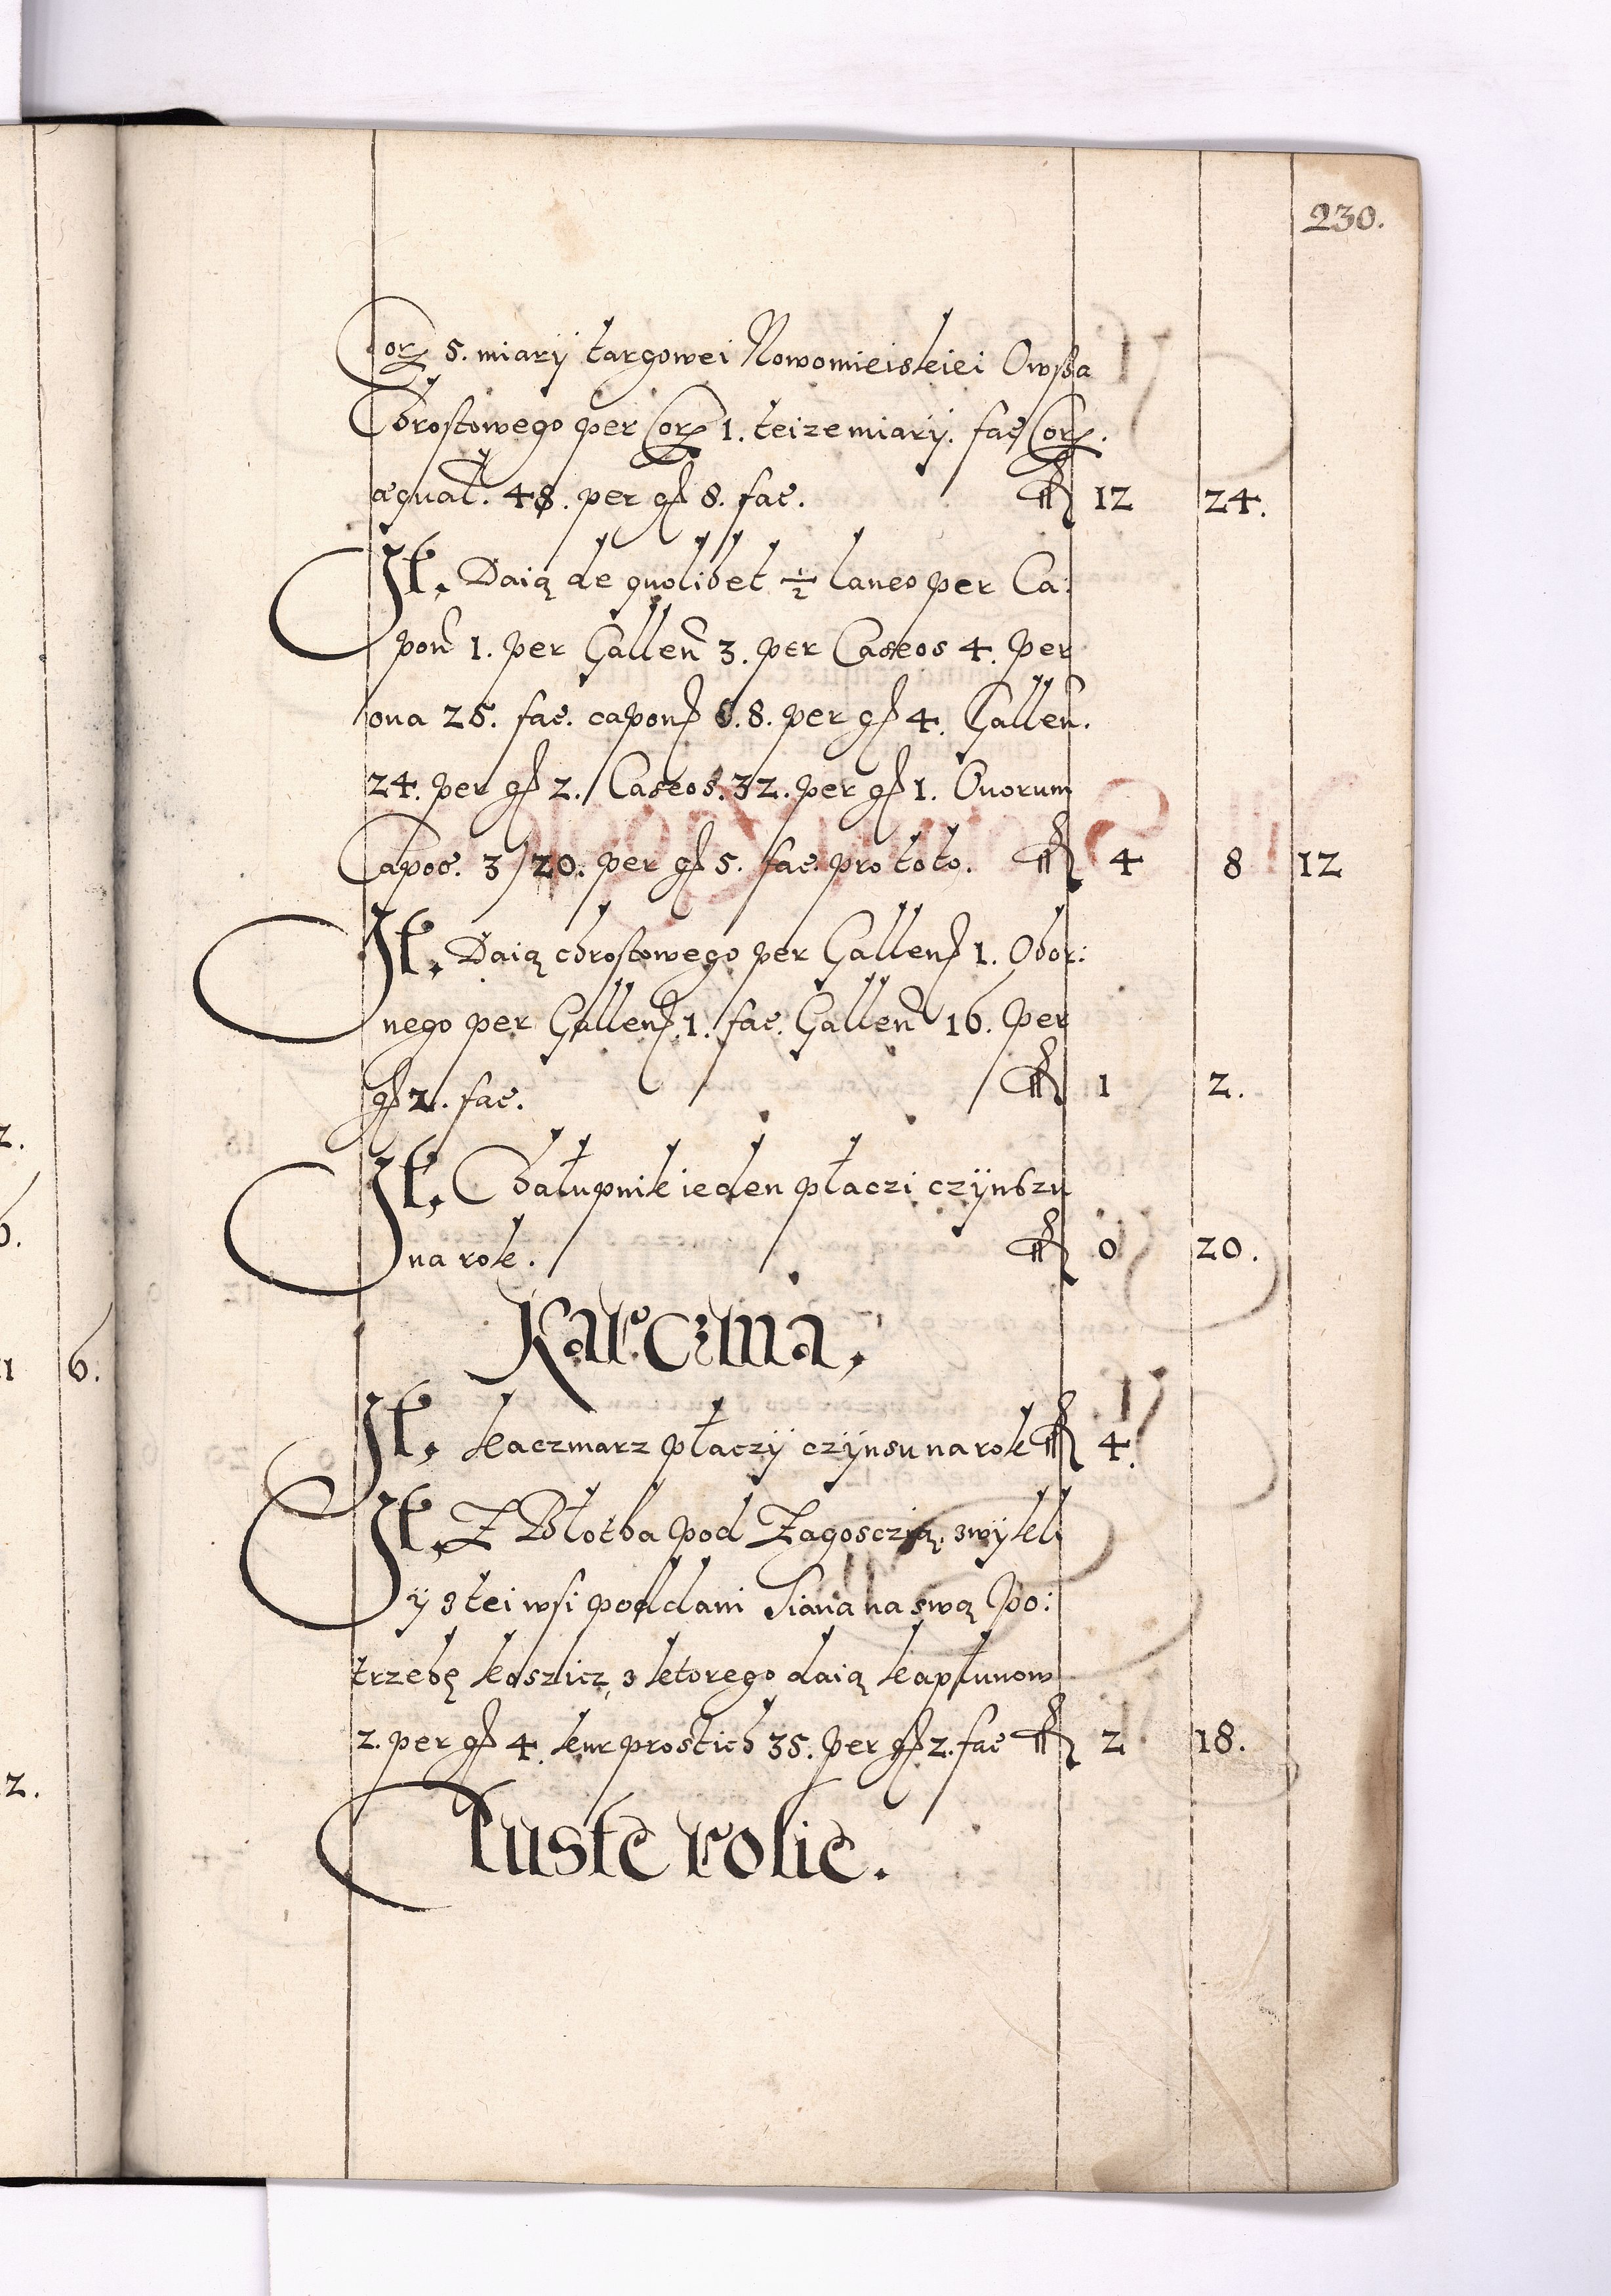 230.
Corz 5. miarÿ targowei Nowomieiskiei Owssa
Chrostowego per Corz 1. teize miarÿ. fac Corz.
æqual. 48. per gr 8. fac. fl 12 24.
It. Daią de quolibet ½ laneo per Ca:
pon 1. per Gallen 3. per Caseos 4. per
oua 25. fac. capon 8. per gr 4. Gallen.
24. per gr 2. Caseos. 32. per gr 1. Ouorum
Capoc. 3/20. per gr 5. fac. pro toto. fl 4 8 12
It. Daią chrostowego per Gallen 1. Obor:
nego per Gallen 1. fac. Gallen 16. per
gr 2. fac. fl 1 2.
It. Chałupnik ieden płaczi czÿnszu
na rok. fl 0 20.
Karczma.
It. kaczmarz płaczÿ czÿnsu na rok fl 4.
It. Z Błotha pod Zagosczią, zwÿkli
ÿ z tei wsi poddani Siana na swą Po:
trzebę koszicz, z ktorego daią kapłunow
2. per gr 4. kur prostich 35. per gr 2. fac fl 2 18.
Puste rolie.
2.
6.
11 6.
2.